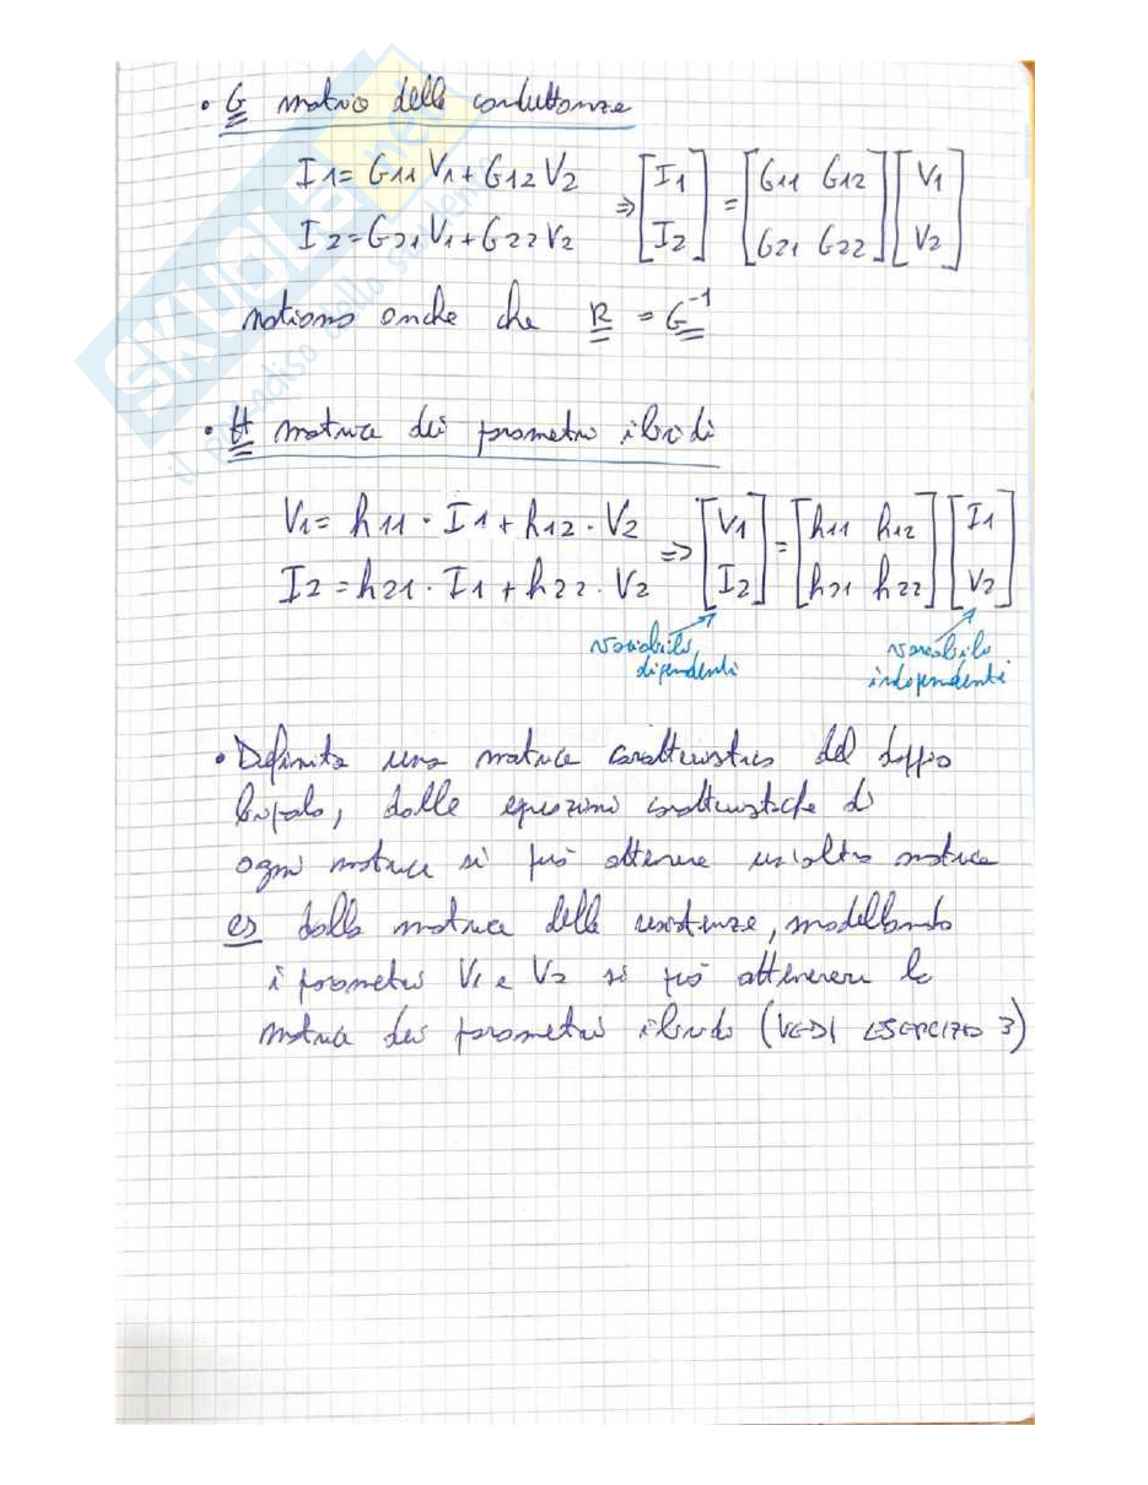 • G matrice delle conduttanze
I1 = G11 V1 + G12 V2 ⇒ [I1 I2] = [G11 G12 G21 G22] [V1 V2]
I2 = G21 V1 + G22 V2
notiamo anche che R = G⁻¹
• H matrice dei parametri ibridi
V1 = h11 · I1 + h12 · V2 ⇒ [V1 I2] = [h11 h12 h21 h22] [I1 V2]
I2 = h21 · I1 + h22 · V2
variabili dipendenti
variabili indipendenti
• Definita una matrice caratteristica del doppio
bipolo, dalle equazioni caratteristiche di
ogni matrice si può ottenere un'altra matrice
es dalla matrice delle resistenze, modellando
i parametri V1 e V2 si può ottenere la
matrice dei parametri ibridi (VEDI ESERCIZIO 3)
SKUOLA.net